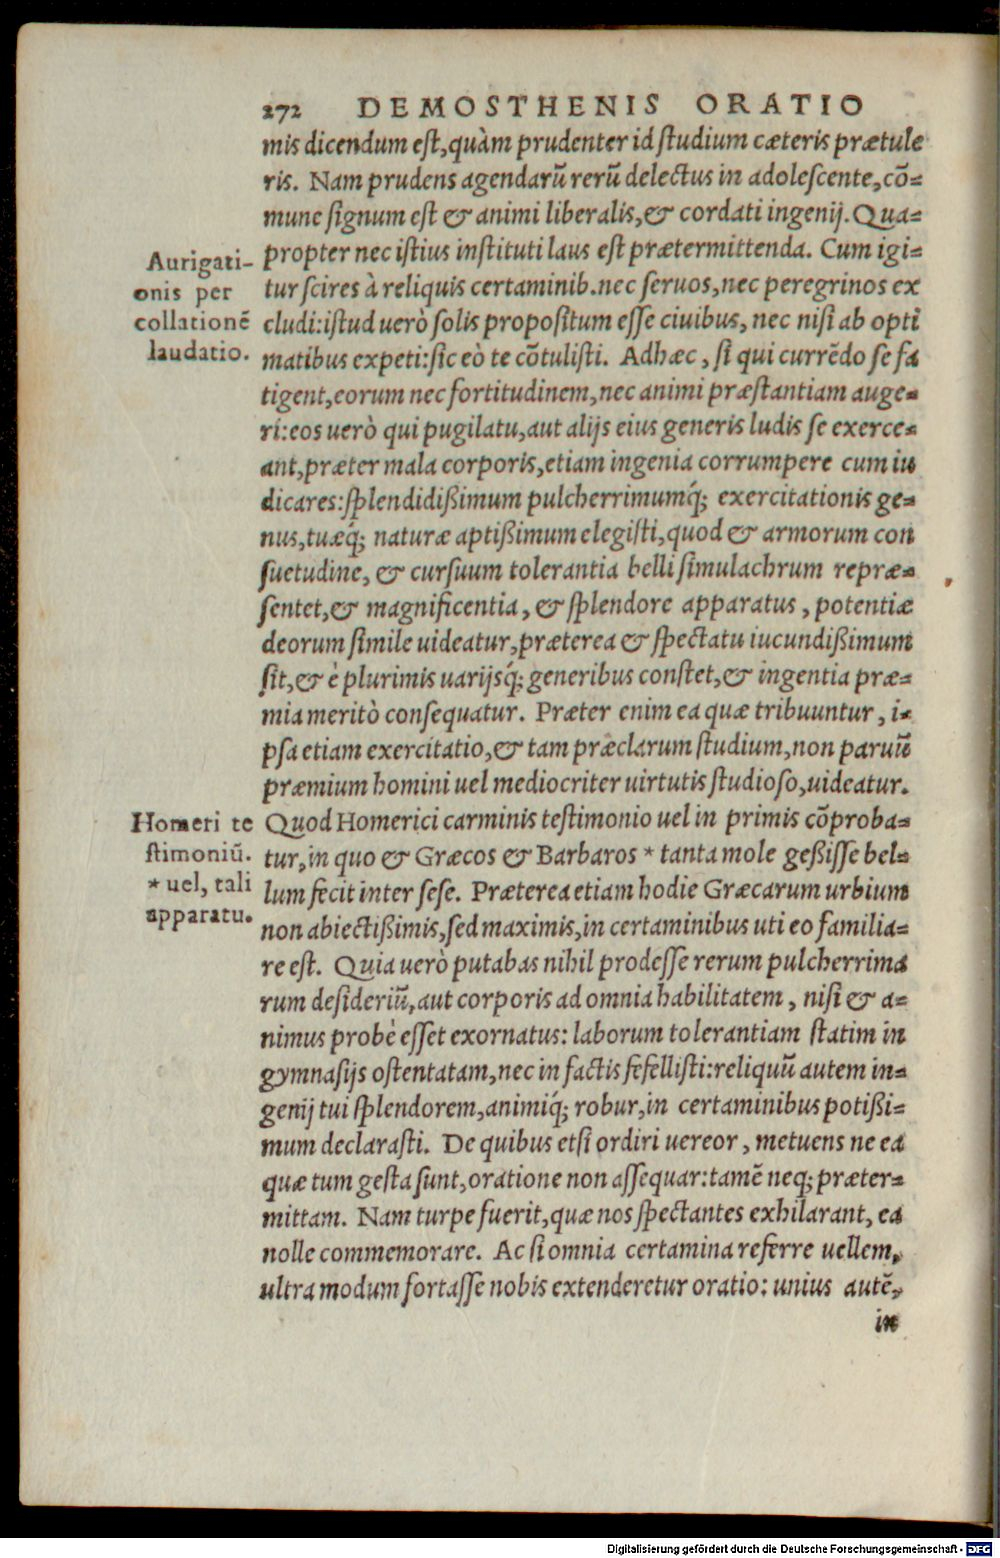 272 DEMOSTHENIS ORATIO
mis dicendum est, quàm prudenter id studium cæteris prætule
ris. Nam prudens agendarũ rerũ delectus in adolescente, cõ-
mune signum est & animi liberalis, & cordati ingenij. Qua-
propter nec istius instituti laus est prætermittenda. Cum igi-
tur scires à reliquis certaminib. nec seruos, nec peregrinos ex
cludi: istud uerò solis propositum esse ciuibus, nec nisi ab opti
matibus expeti: sic eò te cõtulisti. Adhæc, si qui currẽdo se fa
tigent, eorum nec fortitudinem, nec animi præstantiam auge-
ri: eos uerò qui pugilatu, aut alijs eius generis ludis se exerce-
ant, præter mala corporis, etiam ingenia corrumpere cum iu
dicares: splendidißimum pulcherrimumq́; exercitationis ge-
nus, tuæq́; naturæ aptißimum elegisti, quod & armorum con
suetudine, & cursuum tolerantia belli simulachrum repræ-
sentet, & magnificentia, & splendore apparatus, potentiæ
deorum simile uideatur, præterea & spectatu iucundißimum
sit, & è plurimis uarijsq́; generibus constet, & ingentia præ-
mia meritò consequatur. Præter enim ea quæ tribuuntur, i-
psa etiam exercitatio, & tam præclarum studium, non paruũ
præmium homini uel mediocriter uirtutis studioso, uideatur.
Quod Homerici carminis testimonio uel in primis cõproba-
tur, in quo & Græcos & Barbaros * tanta mole geßisse bel-
lum fecit inter sese. Præterea etiam hodie Græcarum urbium
non abiectißimis, sed maximis, in certaminibus uti eo familia-
re est. Quia uerò putabas nihil prodesse rerum pulcherrima
rum desideriũ, aut corporis ad omnia habilitatem, nisi & a-
nimus probè esset exornatus: laborum tolerantiam statim in
gymnasijs ostentatam, nec in factis fefellisti: reliquũ autem in-
genij tui splendorem, animiq́; robur, in certaminibus potißi-
mum declarasti. De quibus etsi ordiri uereor, metuens ne ea
quæ tum gesta sunt, oratione non assequar: tamẽ neq; præter-
mittam. Nam turpe fuerit, quæ nos spectantes exhilarant, ea
nolle commemorare. Ac si omnia certamina referre uellem,
ultra modum fortasse nobis extenderetur oratio: unius autẽ,
in
Aurigati-
onis per
collationẽ
laudatio.
Homeri te
stimoniũ.
* uel, tali
apparatu.
Digitalisierung gefördert durch die Deutsche Forschungsgemeinschaft - DFG